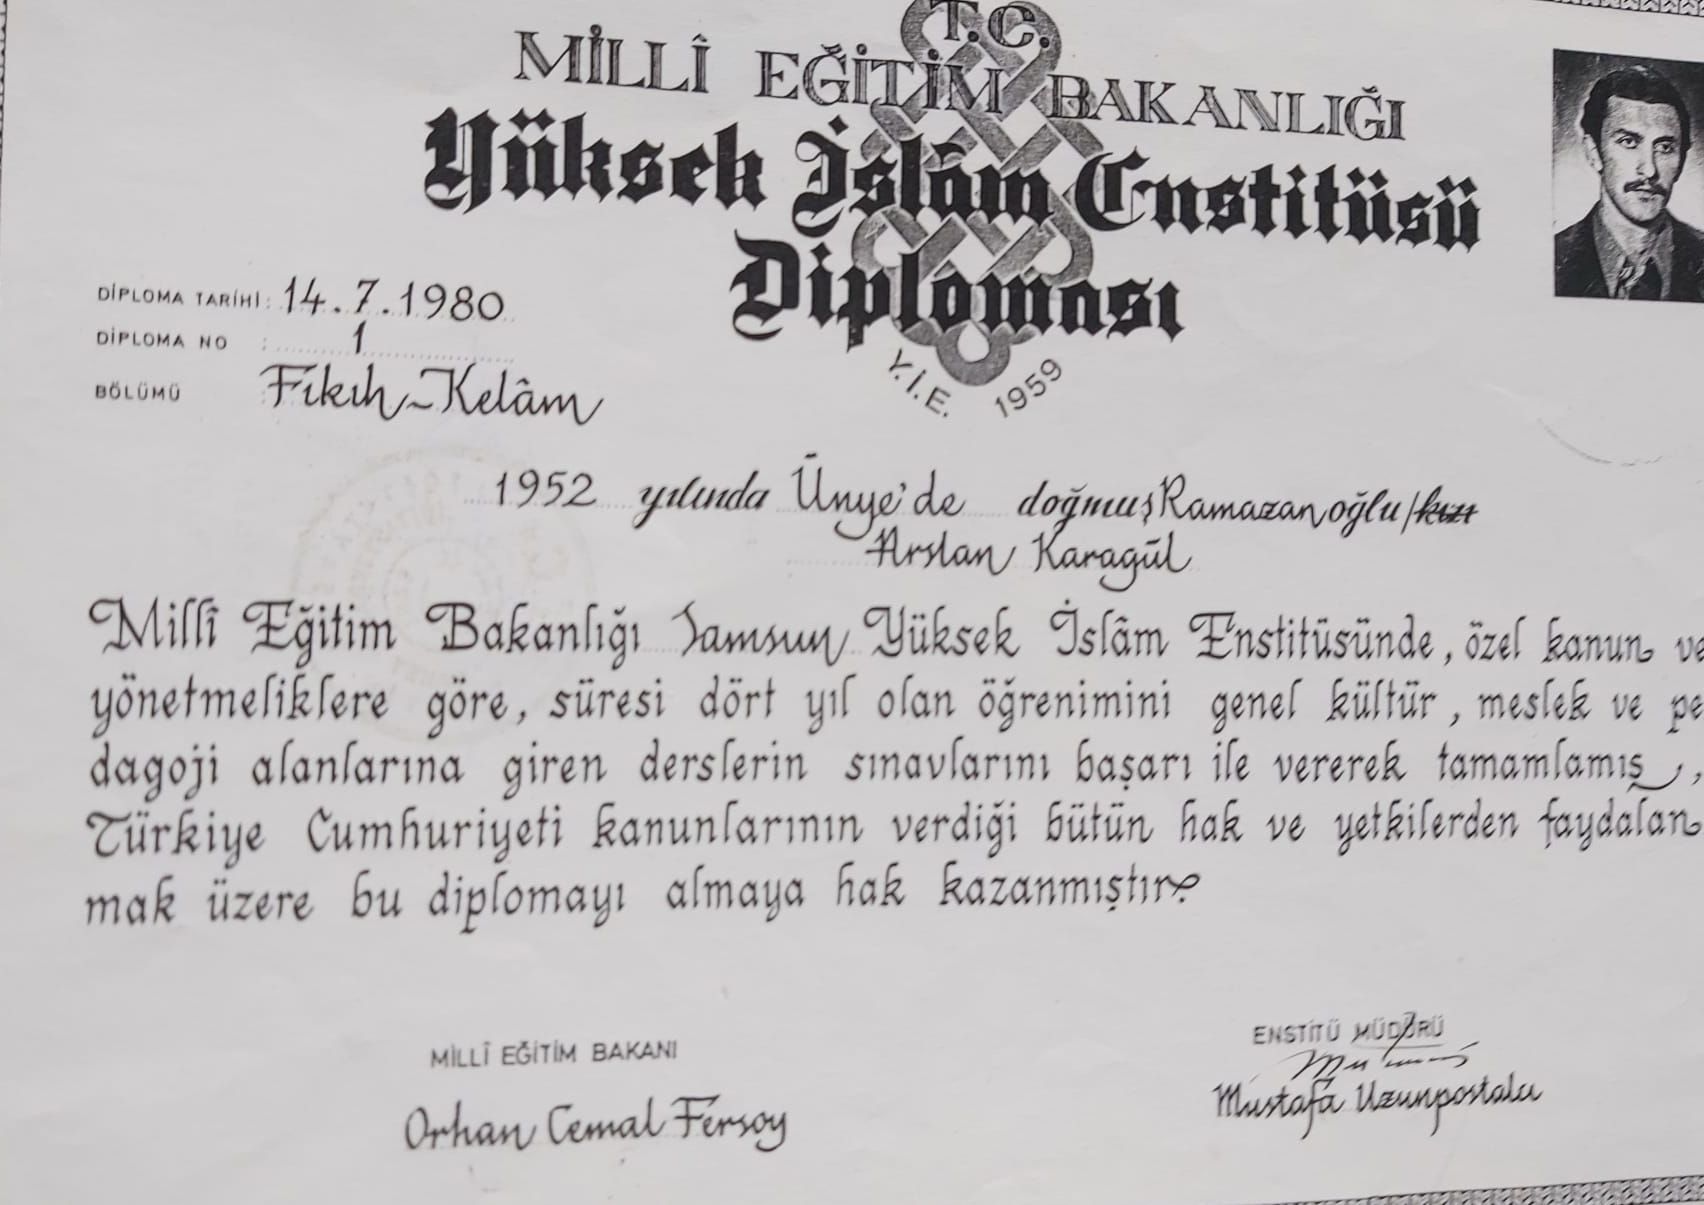 T.C.
MİLLÎ EĞİTİM BAKANLIĞI
Yüksek İslâm Enstitüsü
Diploması
Y.İ.E. 1959
DİPLOMA TARİHİ: 14.7.1980
DİPLOMA NO : 1
BÖLÜMÜ Fıkıh-Kelâm
1952 yılında Ünye'de doğmuş Ramazan oğlu/kızı
Arslan Karagül
Millî Eğitim Bakanlığı Samsun Yüksek İslâm Enstitüsünde, özel kanun ve
yönetmeliklere göre, süresi dört yıl olan öğrenimini genel kültür, meslek ve pe
dagoji alanlarına giren derslerin sınavlarını başarı ile vererek tamamlamış,
Türkiye Cumhuriyeti kanunlarının verdiği bütün hak ve yetkilerden faydalan
mak üzere bu diplomayı almaya hak kazanmıştır.
MİLLÎ EĞİTİM BAKANI
Orhan Cemal Fersoy
ENSTİTÜ MÜDÜRÜ
Mustafa Uzunpostalcı